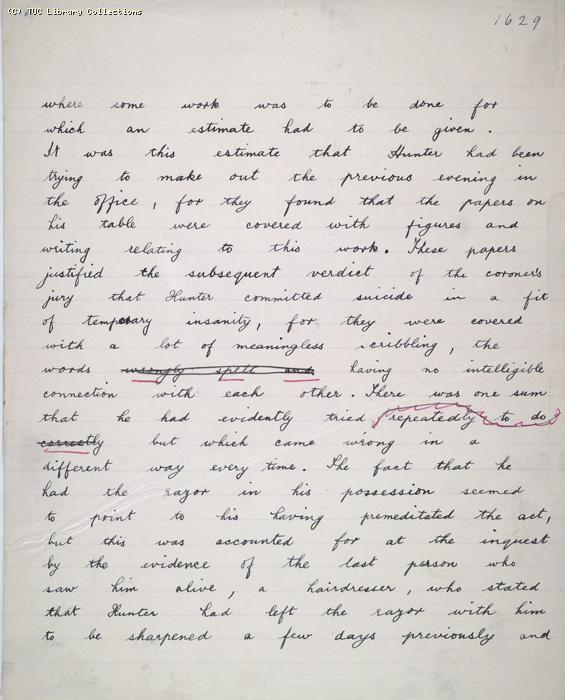 (C) TUC Library Collections
1629
where some work was to be done for
which an estimate had to be given.
It was this estimate that Hunter had been
trying to make out the previous evening in
the office, for they found that the papers on
his table were covered with figures and
writing relating to this work. These papers
justified the subsequent verdict of the coroner's
jury that Hunter committed suicide in a fit
of temporary insanity, for they were covered
with a lot of meaningless scribbling, the
words wrongly spelt and having no intelligible
connection with each other. There was one sum
that he had evidently tried repeatedly to do
correctly but which came wrong in a
different way every time. The fact that he
had the razor in his possession seemed
to point to his having premeditated the act,
but this was accounted for at the inquest
by the evidence of the last person who
saw him alive, a hairdresser, who stated
that Hunter had left the razor with him
to be sharpened a few days previously and